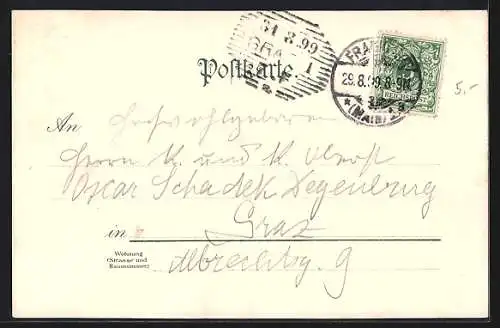 31 8.99
GRAZ
1
FRAN
29.8.99.8-9N
*(MAIN)
REICHSPOST
5.-
Postkarte.
An Hochwohlgeboren
Herrn K. und K. Oberst
Oscar Schadek Degenburg
in Graz
Wohnung
(Strasse und
Hausnummer)
Albrechtsg. 9